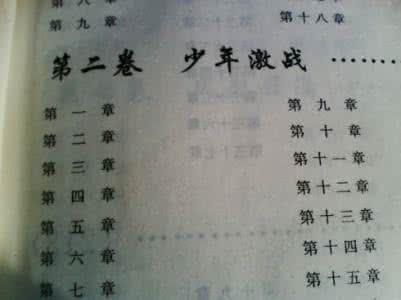 第八章 第十七章
第九章 第十八章
第二卷 少年激战 ⋯⋯
第一章 第九章
第二章 第十章
第三章 第十一章
第四章 第十二章
第五章 第十三章
第六章 第十四章
第七章 第十五章